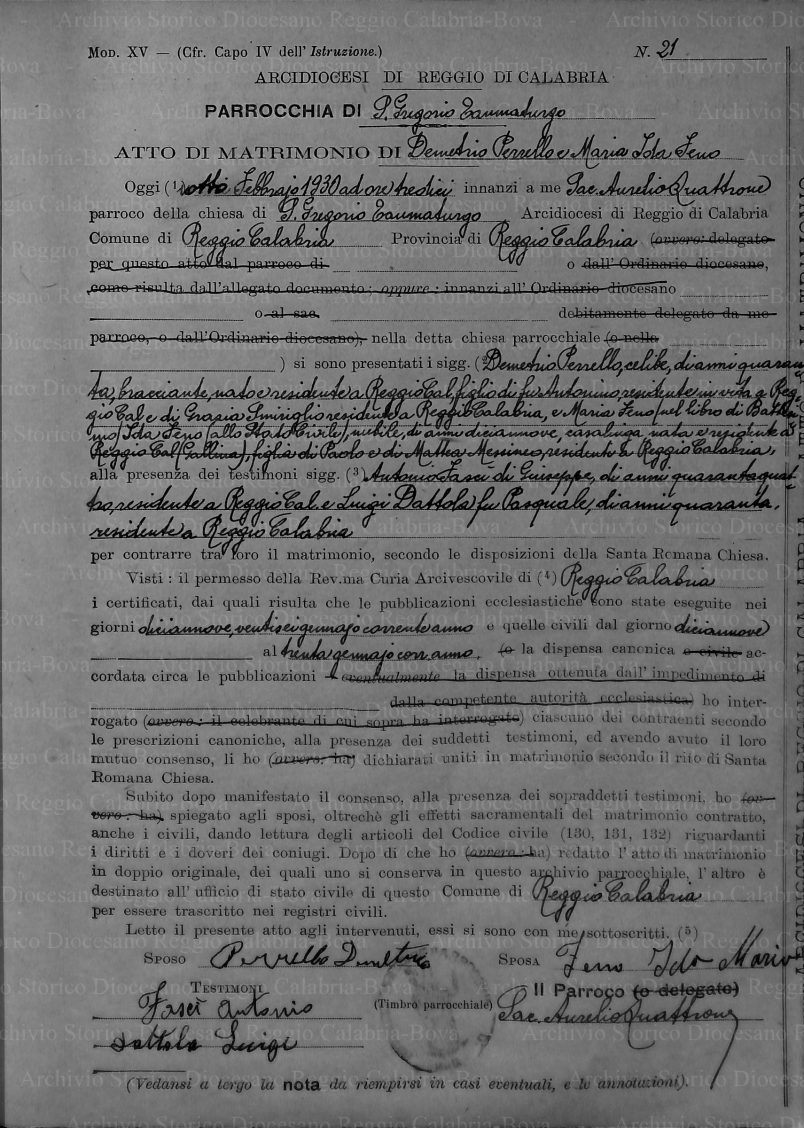 Archivio Storico Diocesano Reggio Calabria-Bova
MOD. XV — (Cfr. Capo IV dell' Istruzione.) N. 21
ARCIDIOCESI DI REGGIO DI CALABRIA
PARROCCHIA DI S. Gregorio Taumaturgo
ATTO DI MATRIMONIO DI Demetrio Perrello e Maria Ida Feno
Oggi (1) otto Febbrajo 1930 ad ore tredici innanzi a me Sac. Aurelio Quattrone
parroco della chiesa di S. Gregorio Taumaturgo Arcidiocesi di Reggio di Calabria
Comune di Reggio Calabria Provincia di Reggio Calabria (ovvero: delegato
per questo atto dal parroco di o dall' Ordinario diocesano,
come risulta dall'allegato documento; oppure: innanzi all' Ordinario diocesano
o al sac. debitamente delegato da me
parroco, o dall'Ordinario diocesano), nella detta chiesa parrocchiale (o nella
) si sono presentati i sigg. (2) Demetrio Perrello, celibe, di anni quaran
ta, bracciante, nato e residente a Reggio Cal, figlio di fu Antonino, residente in vita a Reg
gio Cal e di Grazia Smiriglio residente a Reggio Calabria, e Maria Feno (nel libro di Battesi
mo) Ida Feno (allo Stato Civile), nubile, di anni diciannove, casalinga nata e residente a
Reggio Cal (Gallina), figlia di Paolo e di Mattea Messineo, residenti a Reggio Calabria,
alla presenza dei testimoni sigg. (3) Antonio Fasci di Giuseppe, di anni quarantaquat
tro, residente a Reggio Cal. e Luigi Dattola fu Pasquale, di anni quaranta,
residente a Reggio Calabria
per contrarre tra loro il matrimonio, secondo le disposizioni della Santa Romana Chiesa.
Visti: il permesso della Rev.ma Curia Arcivescovile di (4) Reggio Calabria
i certificati, dai quali risulta che le pubblicazioni ecclesiastiche sono state eseguite nei
giorni diciannove, ventisei gennajo corrente anno e quelle civili dal giorno diciannove
al trenta gennajo corr. anno. (o la dispensa canonica o civile ac-
cordata circa le pubblicazioni — eventualmente la dispensa ottenuta dall' impedimento di
dalla competente autorità ecclesiastica) ho inter-
rogato (ovvero: il celebrante di cui sopra ha interrogato) ciascuno dei contraenti secondo
le prescrizioni canoniche, alla presenza dei suddetti testimoni, ed avendo avuto il loro
mutuo consenso, li ho (ovvero: ha) dichiarati uniti in matrimonio secondo il rito di Santa
Romana Chiesa.
Subito dopo manifestato il consenso, alla presenza dei sopraddetti testimoni, ho (ov-
vero: ha) spiegato agli sposi, oltrechè gli effetti sacramentali del matrimonio contratto,
anche i civili, dando lettura degli articoli del Codice civile (130, 131, 132) riguardanti
i diritti e i doveri dei coniugi. Dopo di che ho (ovvero: ha) redatto l'atto di matrimonio
in doppio originale, dei quali uno si conserva in questo archivio parrocchiale, l'altro è
destinato all' ufficio di stato civile di questo Comune di Reggio Calabria
per essere trascritto nei registri civili.
Letto il presente atto agli intervenuti, essi si sono con me sottoscritti. (5)
SPOSO Perrello Demetrio SPOSA Feno Ida Maria
TESTIMONI Il Parroco (o delegato)
Fasci Antonio (Timbro parrocchiale) Sac. Aurelio Quattrone
Dattola Luigi
(Vedansi a tergo la nota da riempirsi in casi eventuali, e le annotazioni).